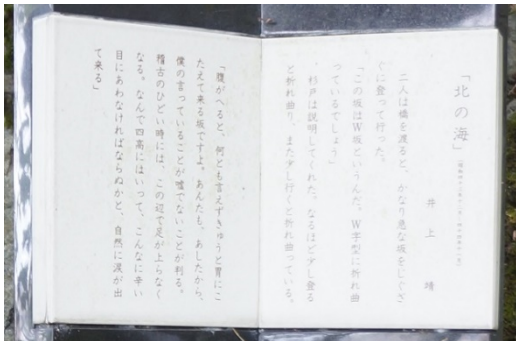 「北の海」
井上 靖
二人は橋を渡ると、かなり急な坂をじぐざ
ぐに登って行った。
「この坂はW坂というんだ。W字型に折れ曲
っているでしょう」
杉戸は説明してくれた。なるほど少し登る
と折れ曲り、また少し行くと折れ曲っている。
「腹がへると、何とも言えずきゅうと胃にこ
たえて来る坂ですよ。あんたも、あしたから、
僕の言っていることが嘘でないことが判る。
稽古のひどい時には、この辺で足が上らなく
なる。なんで四高にはいって、こんなに辛い
目にあわなければならぬかと、自然に涙が出
て来る」